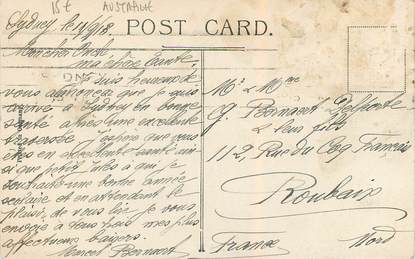 15 € AUSTRALIE
POST CARD.
Sydney le 11/9/18
Mon cher Oncle
ma chère Tante,
suis heureux de
vous annoncer que je suis
arrivé à Sydney en bonne
santé après une excellente
traversée. J'espère que vous
êtes en excellente santé ain
si que petit à qui je
souhaite une bonne année
scolaire et en attendant le
plaisir de vous lire je vous
envoie à tous mes plus
affectueux baisers.
Marcel Bernaert
Mr & Mme
G. Bernaert Delporte
& leur fils
112, Rue du Coq Français
Roubaix
France Nord